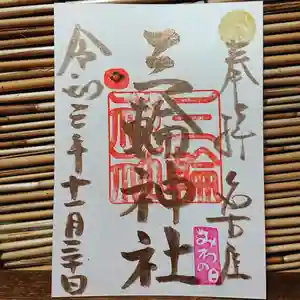 奉拝 名古屋
みわの日
三輪神社
三輪
神社
令和三年十一月三十日